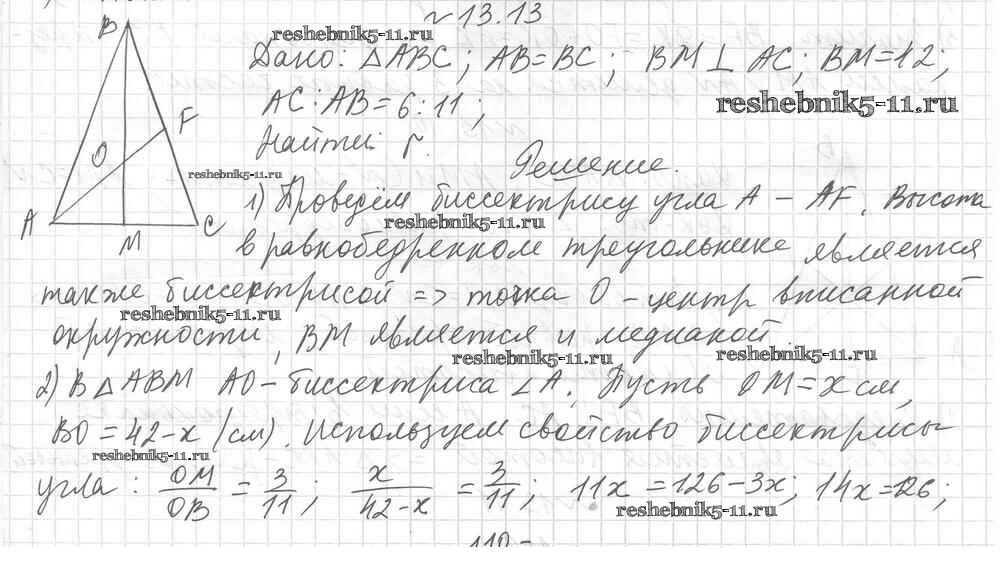 № 13.13
B
reshebnik5-11.ru
Дано: △ABC; AB=BC; BM⊥AC; BM=42;
reshebnik5-11.ru
AC:AB=6:11;
F
Найти r.
O
reshebnik5-11.ru
Решение.
1) Проведём биссектрису угла A – AF. Высота
reshebnik5-11.ru
A
M
C
в равнобедренном треугольнике является
также биссектрисой => точка O – центр вписанной
reshebnik5-11.ru
окружности, BM является и медианой.
reshebnik5-11.ru
reshebnik5-11.ru
2) В △ABM AO – биссектриса ∠A. Пусть OM=x см,
BO=42-x (см). Используем свойство биссектрисы
reshebnik5-11.ru
угла: OM/OB = 3/11; x/(42-x) = 3/11; 11x=126-3x; 14x=126;
reshebnik5-11.ru